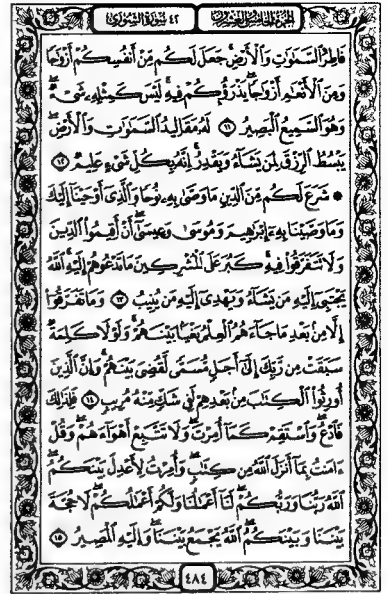 الجزء الخامس والعشرون
٤٢ سورة الشورى
فَاطِرُ السَّمَٰوَٰتِ وَالْأَرْضِ ۚ جَعَلَ لَكُم مِّنْ أَنفُسِكُمْ أَزْوَٰجًا
وَمِنَ الْأَنْعَٰمِ أَزْوَٰجًا ۖ يَذْرَؤُكُمْ فِيهِ ۚ لَيْسَ كَمِثْلِهِۦ شَىْءٌ ۖ
وَهُوَ السَّمِيعُ الْبَصِيرُ ۝١١ لَهُۥ مَقَالِيدُ السَّمَٰوَٰتِ وَالْأَرْضِ ۖ
يَبْسُطُ الرِّزْقَ لِمَن يَشَآءُ وَيَقْدِرُ ۚ إِنَّهُۥ بِكُلِّ شَىْءٍ عَلِيمٌ ۝١٢
* شَرَعَ لَكُم مِّنَ الدِّينِ مَا وَصَّىٰ بِهِۦ نُوحًا وَالَّذِىٓ أَوْحَيْنَآ إِلَيْكَ
وَمَا وَصَّيْنَا بِهِۦٓ إِبْرَٰهِيمَ وَمُوسَىٰ وَعِيسَىٰٓ ۖ أَنْ أَقِيمُوا۟ الدِّينَ
وَلَا تَتَفَرَّقُوا۟ فِيهِ ۚ كَبُرَ عَلَى الْمُشْرِكِينَ مَا تَدْعُوهُمْ إِلَيْهِ ۚ اللَّهُ
يَجْتَبِىٓ إِلَيْهِ مَن يَشَآءُ وَيَهْدِىٓ إِلَيْهِ مَن يُنِيبُ ۝١٣ وَمَا تَفَرَّقُوٓا۟
إِلَّا مِنۢ بَعْدِ مَا جَآءَهُمُ الْعِلْمُ بَغْيًۢا بَيْنَهُمْ ۚ وَلَوْلَا كَلِمَةٌ
سَبَقَتْ مِن رَّبِّكَ إِلَىٰٓ أَجَلٍ مُّسَمًّى لَّقُضِىَ بَيْنَهُمْ ۚ وَإِنَّ الَّذِينَ
أُورِثُوا۟ الْكِتَٰبَ مِنۢ بَعْدِهِمْ لَفِى شَكٍّ مِّنْهُ مُرِيبٍ ۝١٤ فَلِذَٰلِكَ
فَادْعُ ۖ وَاسْتَقِمْ كَمَآ أُمِرْتَ ۖ وَلَا تَتَّبِعْ أَهْوَآءَهُمْ ۖ وَقُلْ
ءَامَنتُ بِمَآ أَنزَلَ اللَّهُ مِن كِتَٰبٍ ۖ وَأُمِرْتُ لِأَعْدِلَ بَيْنَكُمُ ۖ
اللَّهُ رَبُّنَا وَرَبُّكُمْ ۖ لَنَآ أَعْمَٰلُنَا وَلَكُمْ أَعْمَٰلُكُمْ ۖ لَا حُجَّةَ
بَيْنَنَا وَبَيْنَكُمُ ۖ اللَّهُ يَجْمَعُ بَيْنَنَا ۖ وَإِلَيْهِ الْمَصِيرُ ۝١٥
٤٨٤